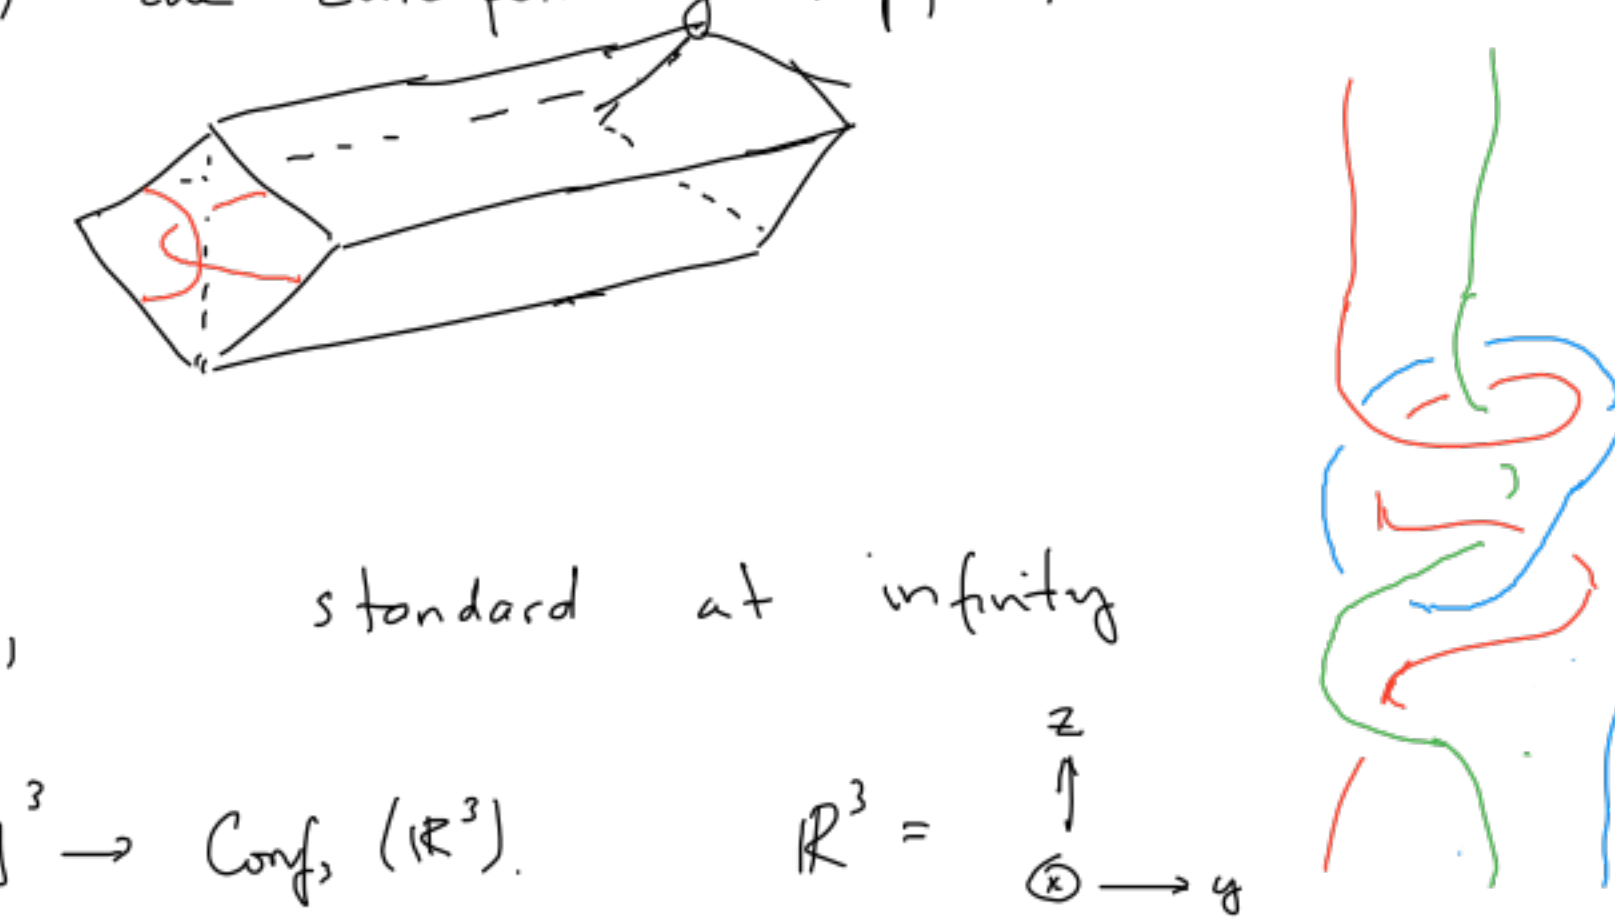 the
standard at infinity
,
³ → Conf₃ (ℝ³). ℝ³ =
z
x y